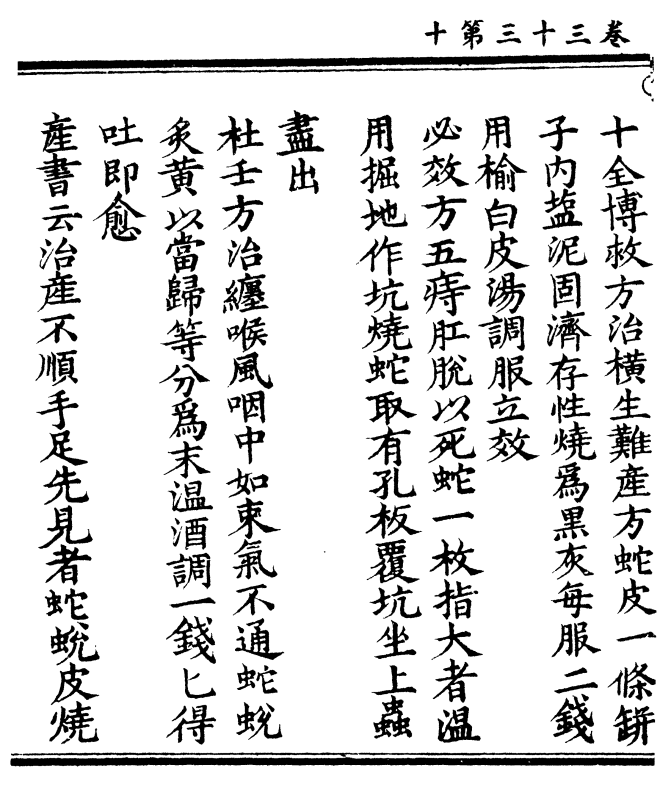 卷三十三第十
十全博救方治橫生難產方蛇皮一條缾
子内塩泥固濟存性燒爲黑灰每服二錢
用榆白皮湯調服立效
必效方五痔肛脫以死蛇一枚指大者温
用掘地作坑燒蛇取有孔板覆坑坐上蟲
盡出
杜壬方治纏喉風咽中如束氣不通蛇蛻
炙黄以當歸等分爲末温酒調一錢匕得
吐即愈
產書云治產不順手足先見者蛇蛻皮燒